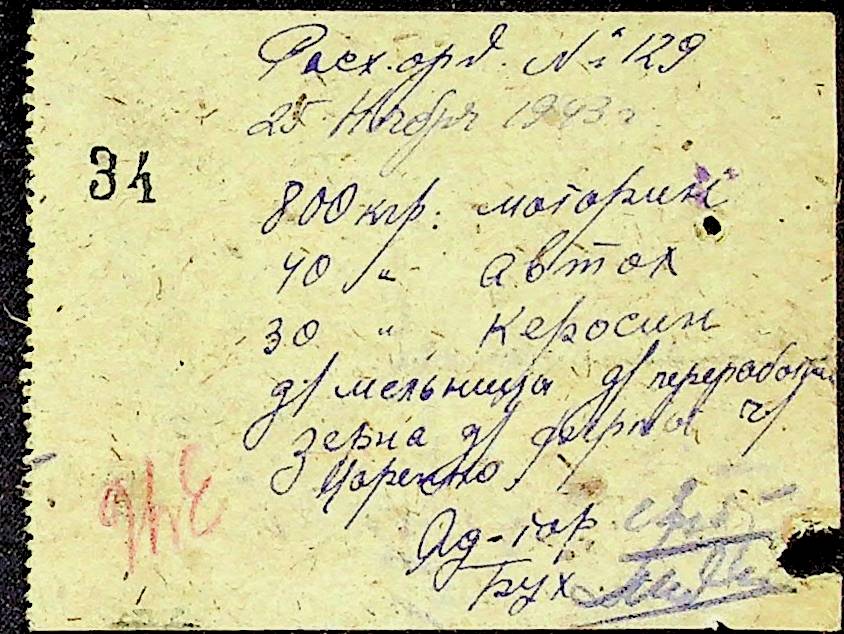 Расх. орд. № 129
25 Ноября 1943 г
34
800 кгр. моторин
40 " автол
30 " керосин
д/ мельница д/ переработки
зерна д/ фермы ч/
Царенко
Яд-гор
Бух.